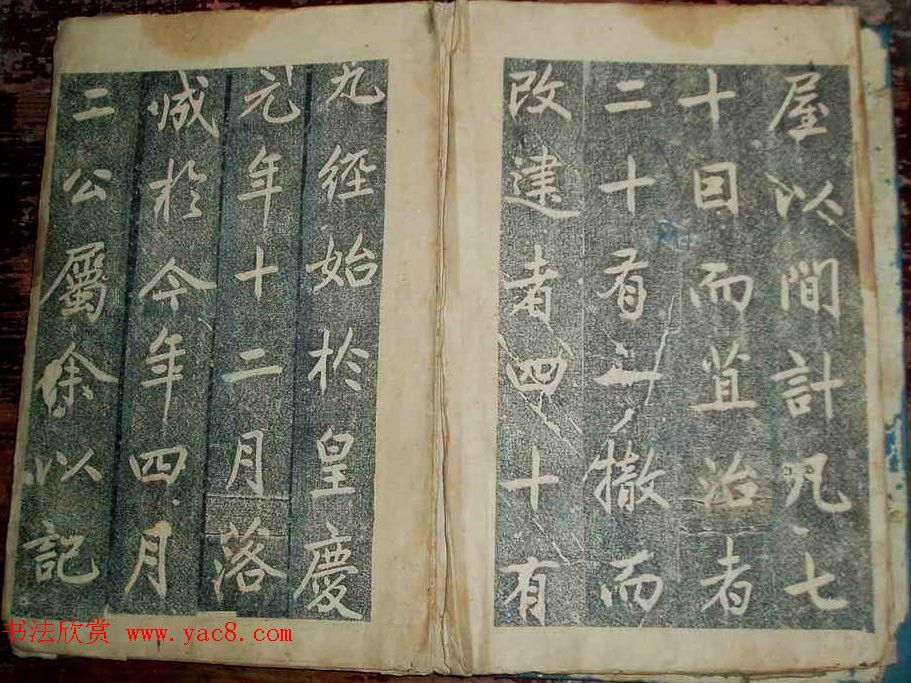 屋以間計凡七
十曰而苴治者
二十有二撤而
改建者四十有
九經始於皇慶
元年十二月落
成於今年四月
二公屬余以記
书法欣赏 www.yac8.com